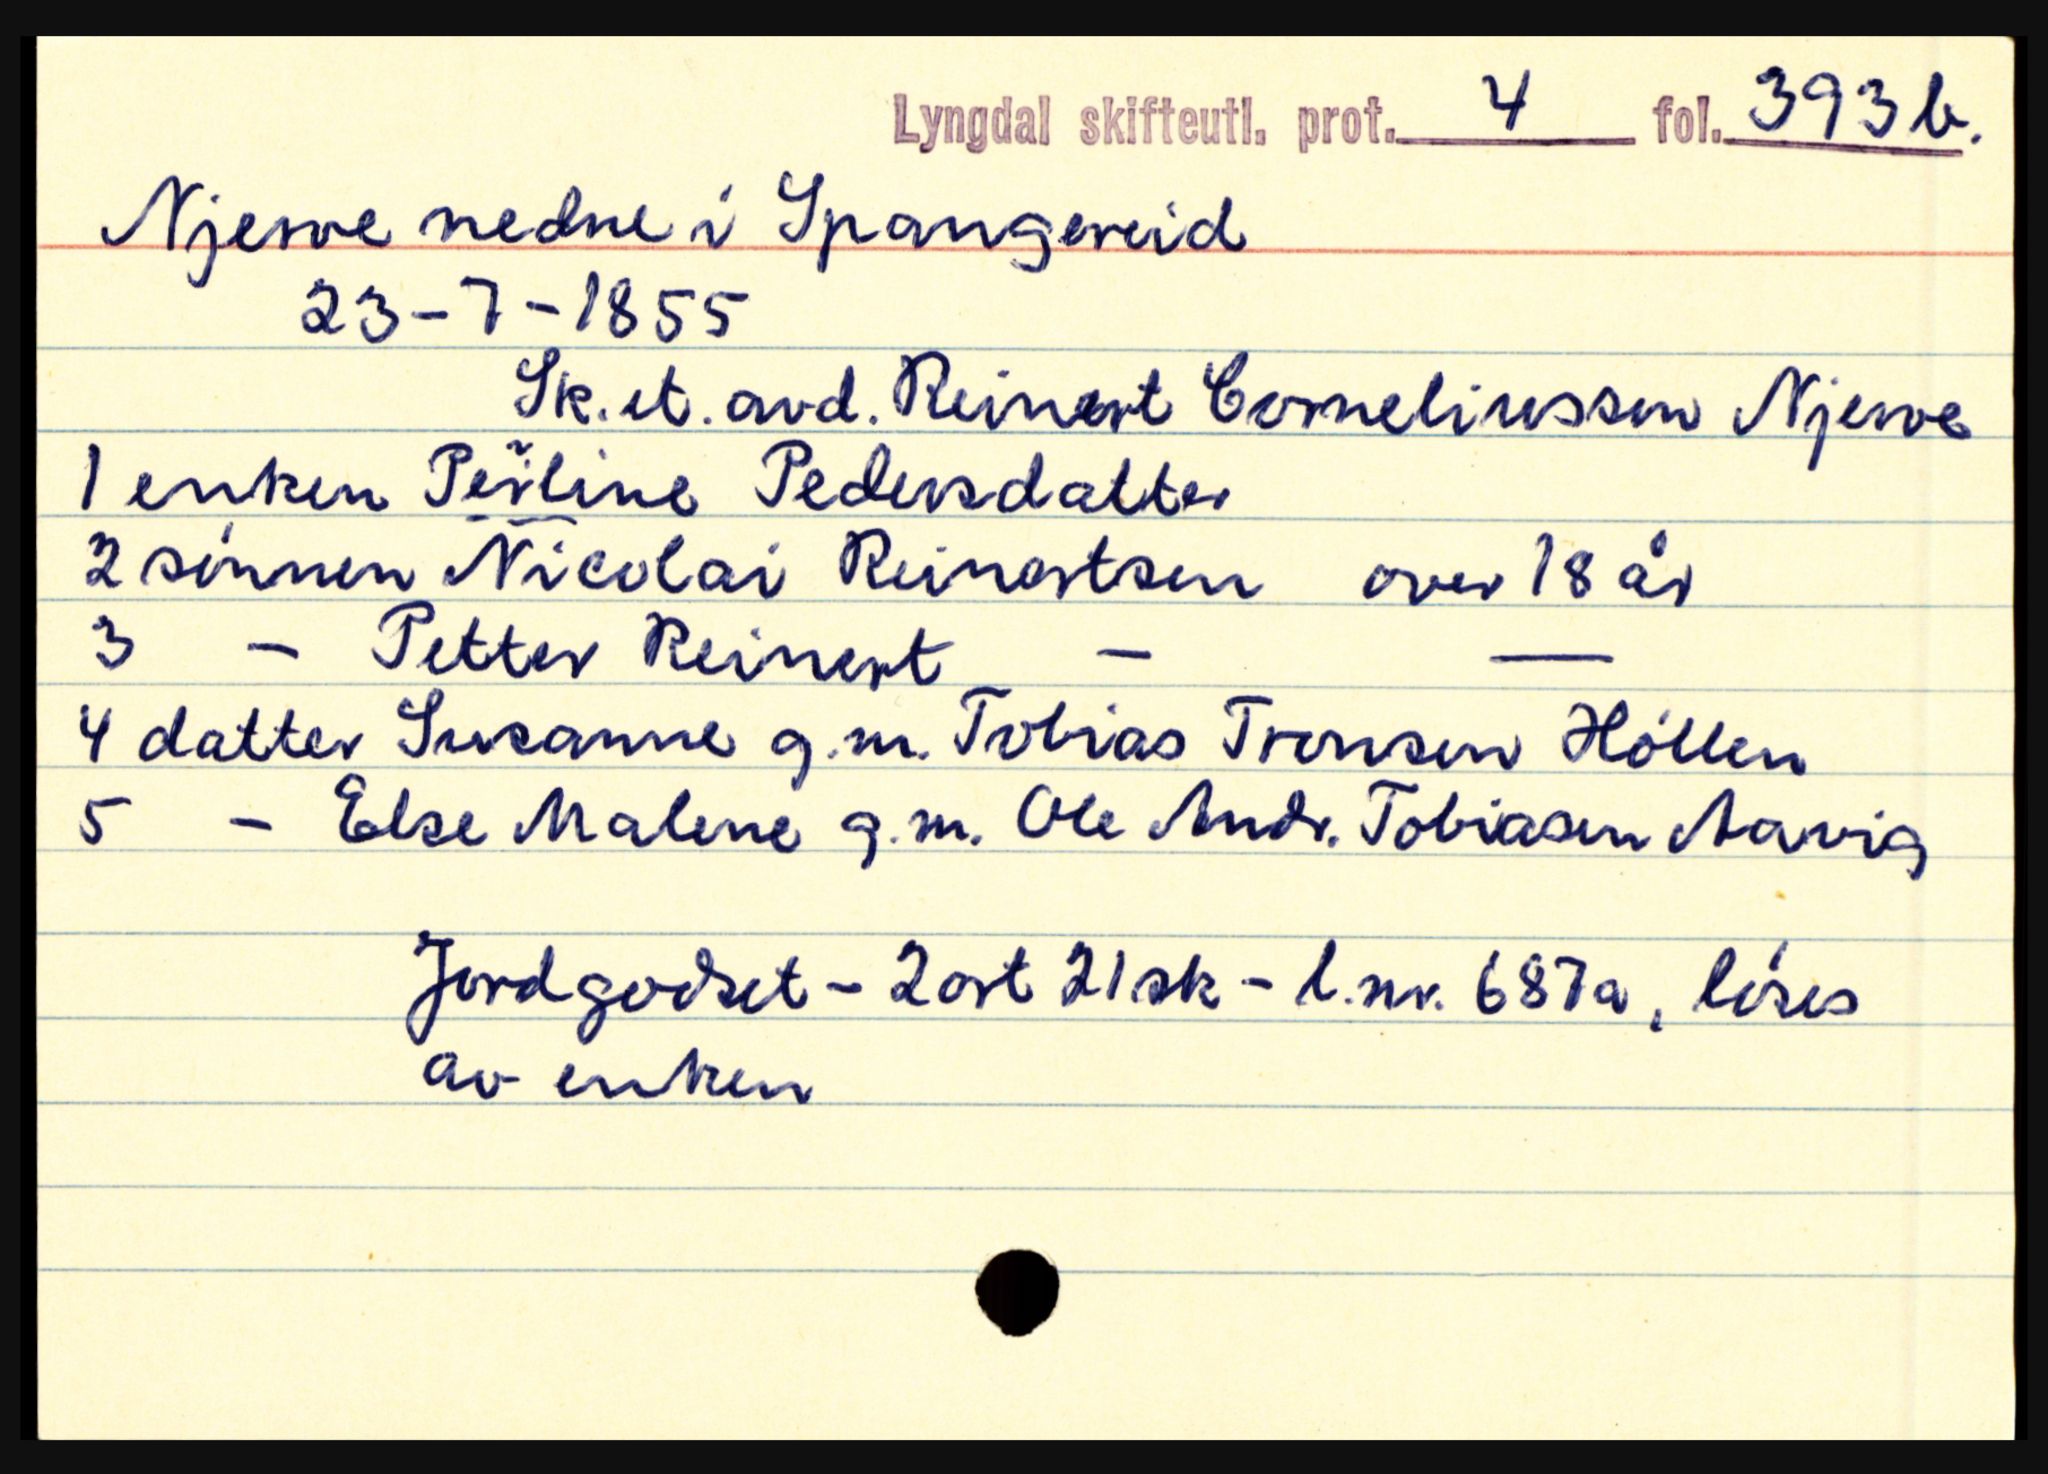 Lyngdal skifteutl. prot. 4 fol. 393 b.
Njerve nedre i Spangereid
23-7-1855
Sk. et. avd. Reinert Corneliussen Njerve
1 enken Perline Pedersdatter
2 sónnen Nicolai Reinertsen over 18 år
3 - Petter Reinert - —
4 datter Susanne g.m. Tobias Tronsen Hóllen
5 - Else Malene g.m. Ole Andr. Tobiasen Aavig
Jordgodset - 2 ort 21 sk - l.nr. 687a, lóses
av enken